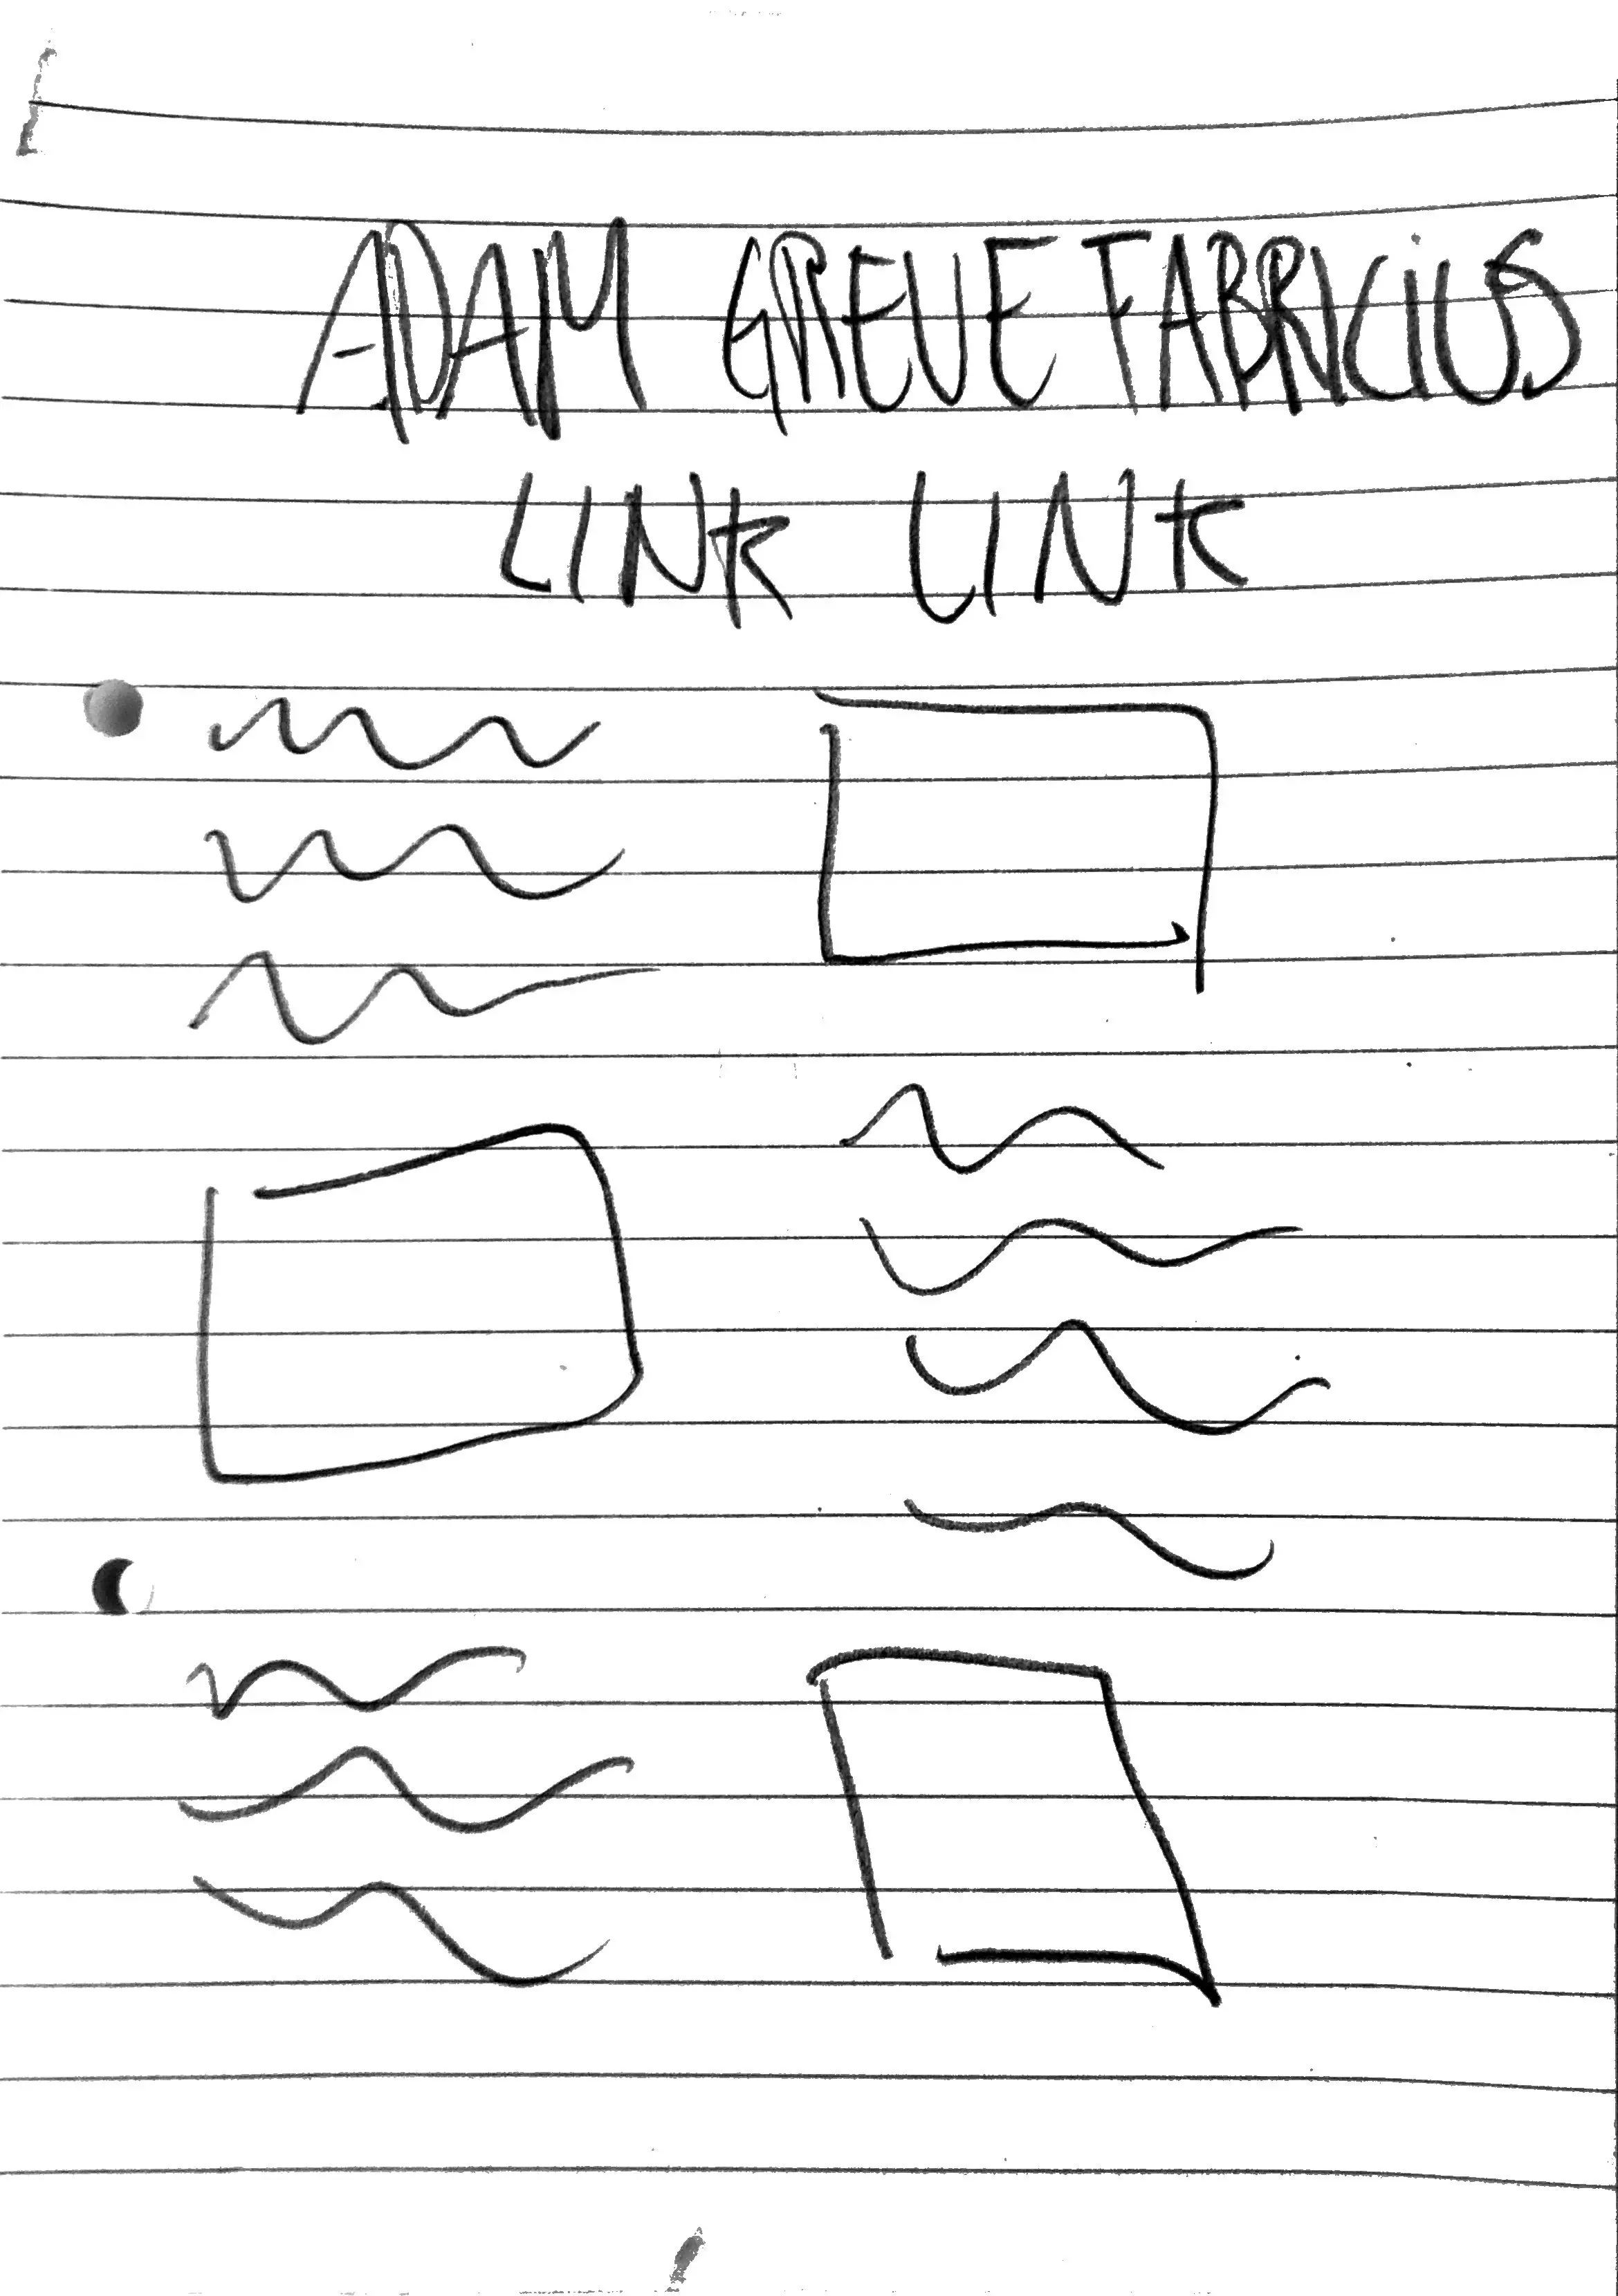 ADAM GREVE FABRICIUS
LINK LINK